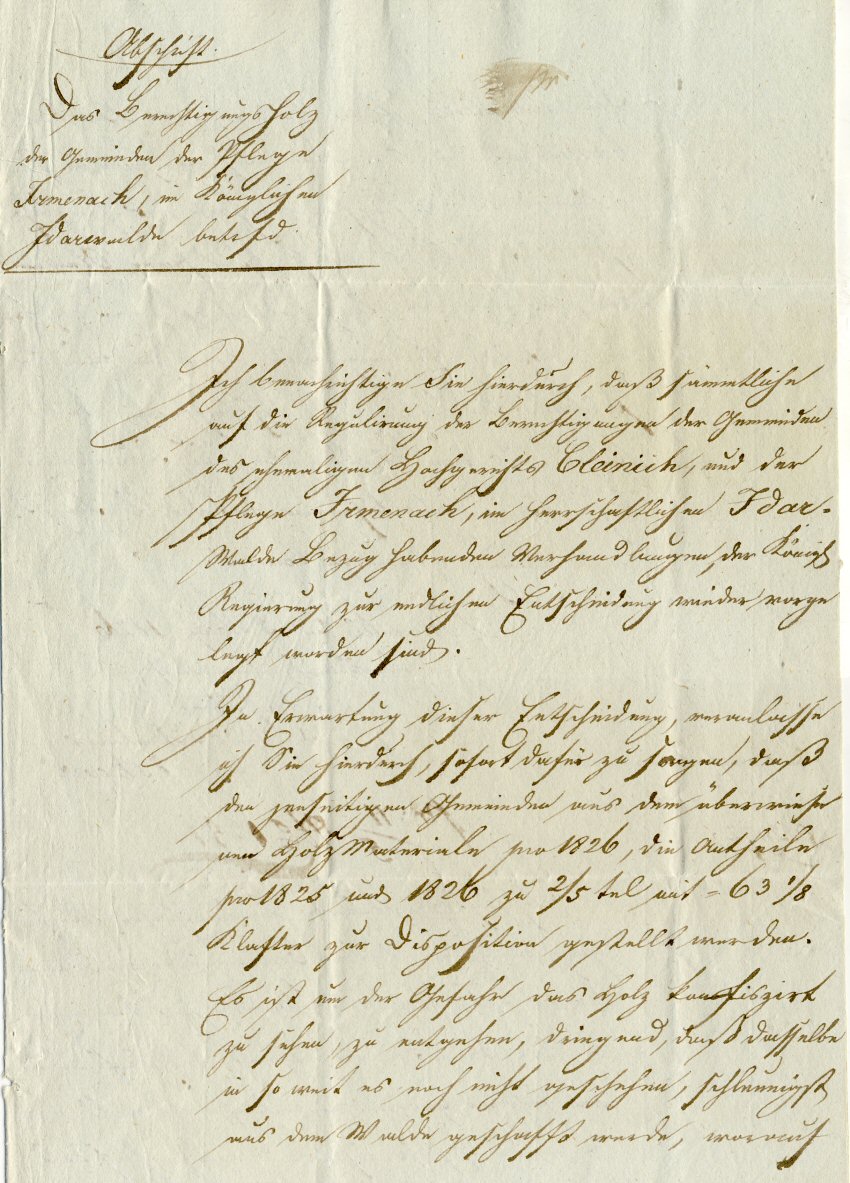 Abschrift.
Das Berechtigungsholz
der Gemeinden der Pflege
Irmenach, im Königlichen
Idarwalde betrfd.
Ich benachrichtige Sie hierdurch, daß sämmtliche
auf die Regulirung der Berechtigungen der Gemeinden
des ehemaligen Hochgerichts Cleinich, und der
Pflege Irmenach, im herrschaftlichen Idar-
Walde Bezug habenden Verhandlungen, der Königl
Regierung zur endlichen Entscheidung wieder vorge
legt worden sind.
In Erwartung dieser Entscheidung, veranlasse
ich Sie hierdurch, sofort dafür zu sorgen, daß
den jenseitigen Gemeinden aus dem überwiese
nen Holz Materiale pro 1826, die Antheile
pro 1825 und 1826 zu 2/5 tel mit = 63 1/8
Klafter zur Disposition gestellt werden.
Es ist um der Gefahr das Holz konfiszirt
zu sehen, zu entgehen, dringend, daß dasselbe
in so weit es noch nicht geschehen, schleunigst
aus dem Walde geschafft werde, worauf